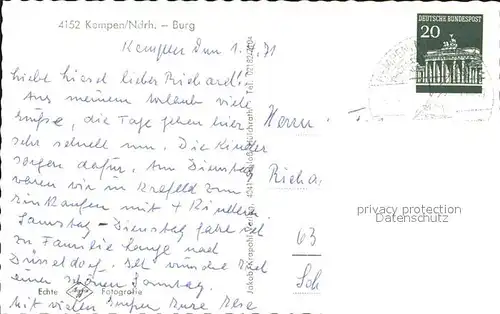 4152 Kempen/Ndrh. – Burg
DEUTSCHE BUNDESPOST
20
Kempen, den 1.
Liebe Lieber Richard!
Aus meinem Urlaub viele
Grüße, die Tage gehen hier
sehr schnell um. Die Kinder
sorgen dafür. Am Dienstag
waren wir in Krefeld zum
Einkaufen mit 4 Kindern.
Samstag – Dienstag fahre ich
zu Familie Lange nach
Düsseldorf. Ich wünsche
einen schönen Sonntag.
Mit vielen Grüßen Eure
Echte Agfa Fotografie
Jakob Krapohl-Verlag
Herrn
Richa
63
Sch
privacy protection
Datenschutz